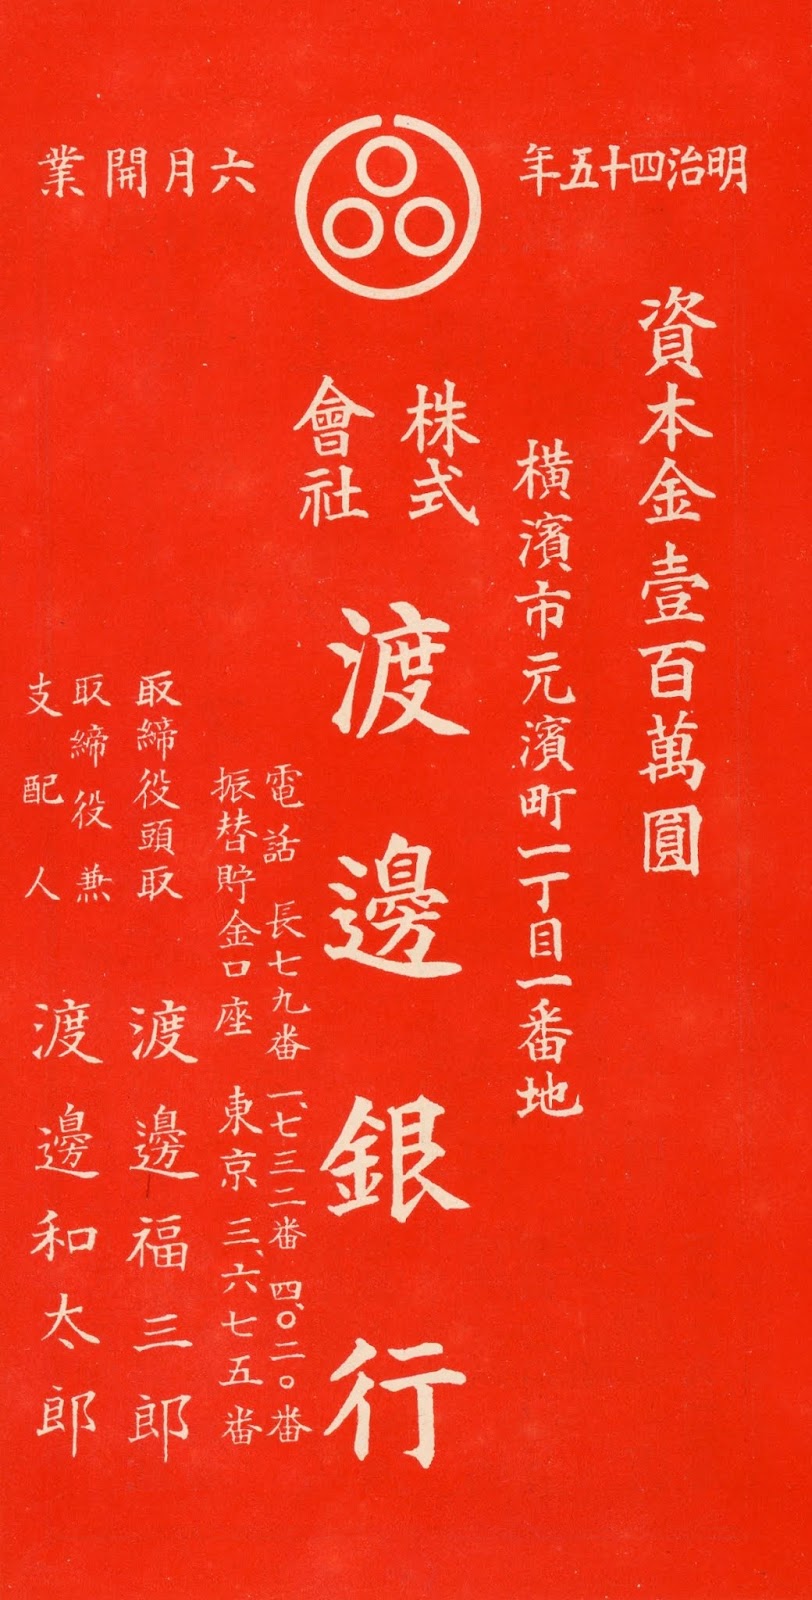 明治四十五年
六月開業
資本金壹百萬圓
横濱市元濱町一丁目一番地
株式
會社
渡邊銀行
電話 長七九番 一、七三二番 四、〇二〇番
振替貯金口座 東京 三、六七五番
取締役頭取 渡邊福三郎
取締役兼
支配人 渡邊和太郎